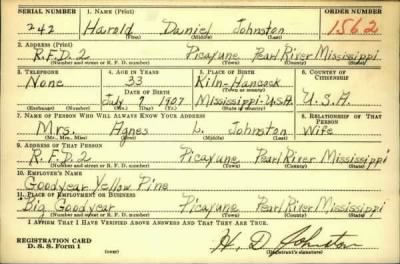 SERIAL NUMBER 1. NAME (Print) ORDER NUMBER
242 Harold Daniel Johnston 1562
(First) (Middle) (Last)
2. ADDRESS (Print)
R.F.D. 2 Picayune Pearl River Mississippi
(Number and street or R. F. D. number) (Town) (County) (State)
3. TELEPHONE 4. AGE IN YEARS 5. PLACE OF BIRTH 6. COUNTRY OF CITIZENSHIP
None 33 Kiln-Hancock
DATE OF BIRTH (Town or county)
July 9 1907 Mississippi-U.S.A. U.S.A.
(Exchange) (Number) (Mo.) (Day) (Yr.) (State or country)
7. NAME OF PERSON WHO WILL ALWAYS KNOW YOUR ADDRESS 8. RELATIONSHIP OF THAT PERSON
Mrs. Agnes L. Johnston Wife
(Mr., Mrs., Miss) (First) (Middle) (Last)
9. ADDRESS OF THAT PERSON
R.F.D. 2 Picayune Pearl River Mississippi
(Number and street or R. F. D. number) (Town) (County) (State)
10. EMPLOYER'S NAME
Goodyear Yellow Pine
11. PLACE OF EMPLOYMENT OR BUSINESS
Big Goodyear Picayune Pearl River Mississippi
(Number and street or R. F. D. number) (Town) (County) (State)
I AFFIRM THAT I HAVE VERIFIED ABOVE ANSWERS AND THAT THEY ARE TRUE.
REGISTRATION CARD
D. S. S. Form 1 H. D Johnston
(Registrant's signature)